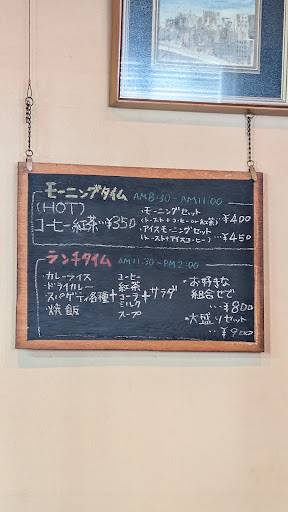 モーニングタイム AM8:30-AM11:00
(HOT)
コーヒー 紅茶…¥350
・モーニングセット
(トースト+コーヒーor紅茶)…¥400
・アイスモーニングセット
(トースト+アイスコーヒー)…¥450
ランチタイム AM11:30-PM2:00
・カレーライス
・ドライカレー
・スパゲティ各種
・焼飯
+
コーヒー
紅茶
コーラ
ミルク
スープ
+サラダ
・お好きな
組合せで
…¥800
・大盛りセット
…¥900